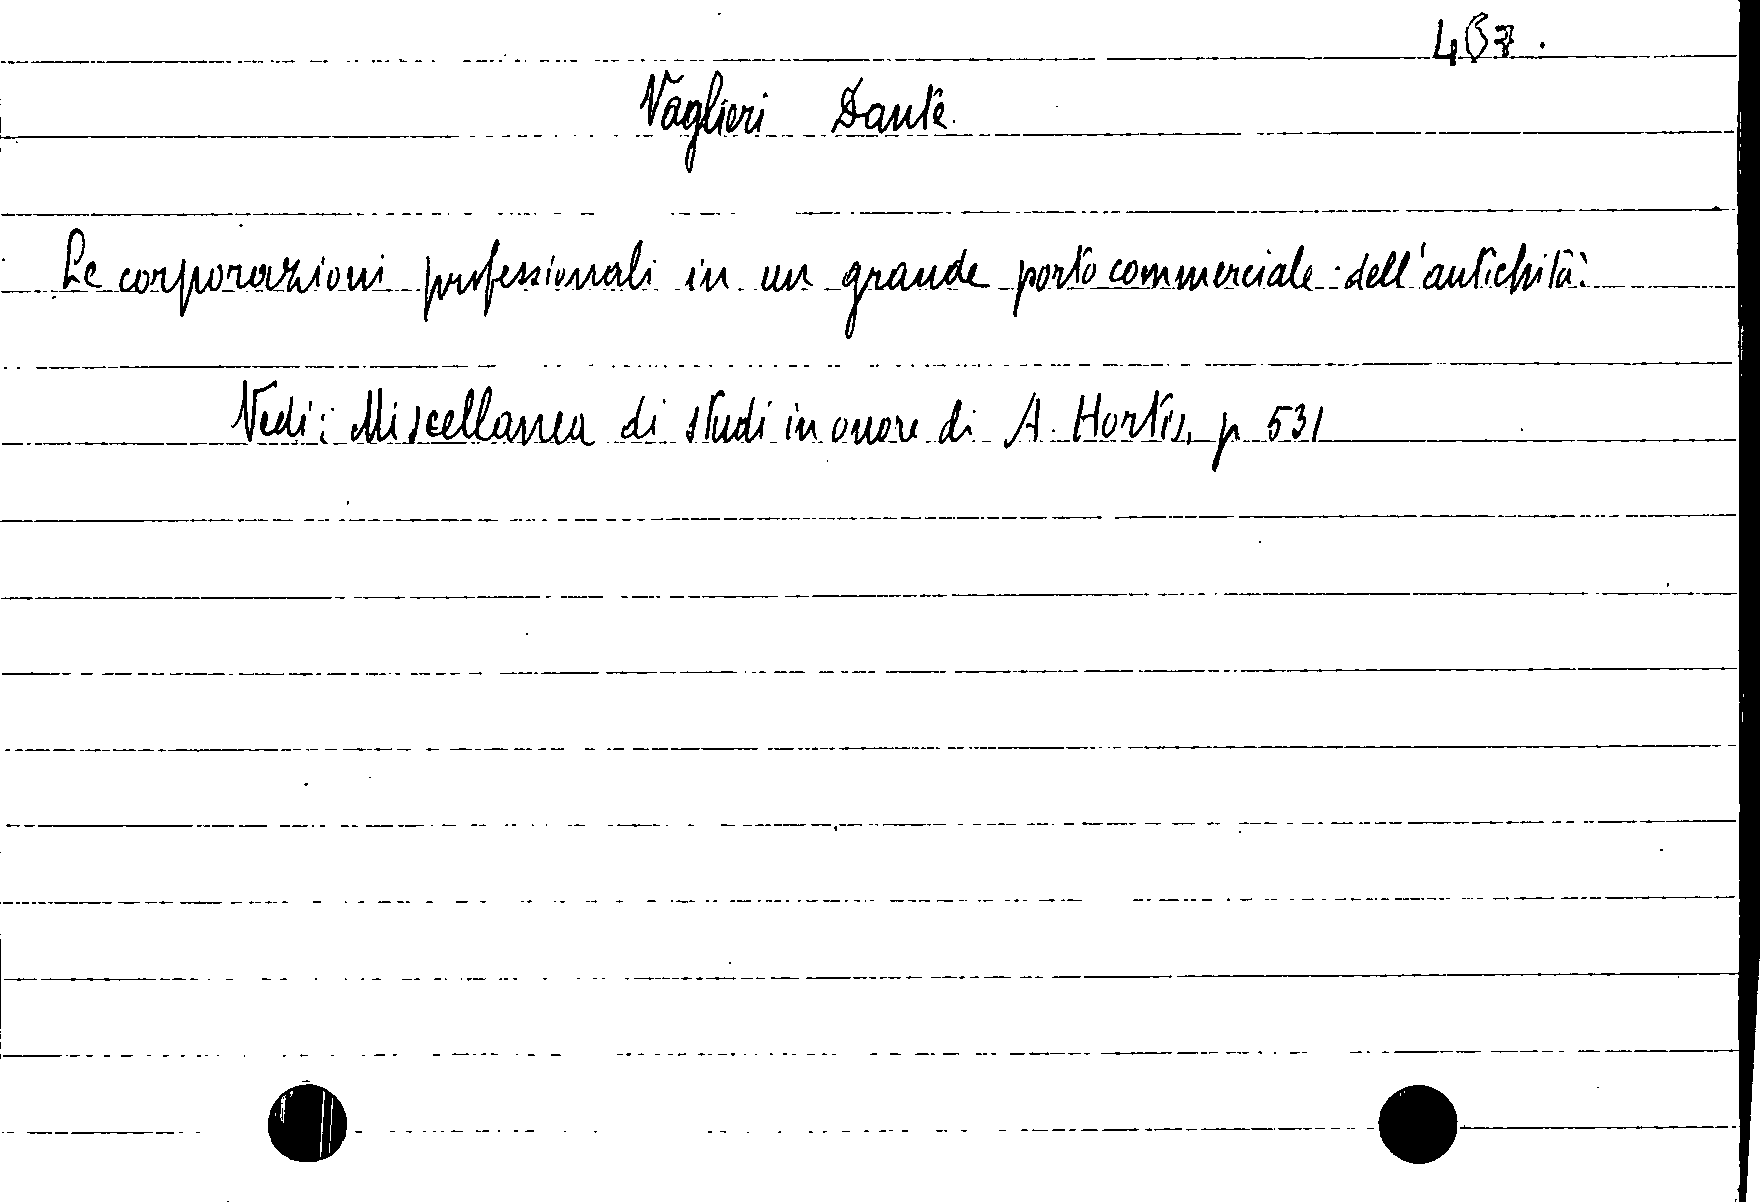 Vaglieri Dante
Le corporazioni professionali in un grande porto commerciale dell'antichità.
Vedi: Miscellanea di studi in onore di A. Hortis, p 531